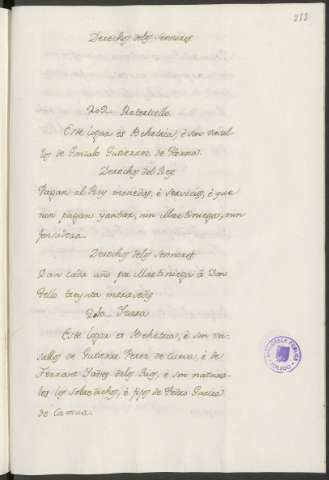 213
Derechos delos sennores
202 Retortiello.
Este logar es Behetria, é son vasal-
los de Gonzalo Gutierrez de
Derechos del Rey
Pagan al Rey monedas, é servicios, é que
non pagan yantar, nin Martiniega, nin
fonsadera.
Derechos delos sennores
Dan cada año por Martiniega á Don
Tello treynta maravedis
Este logar es Behetria, é son va-
sallos de Gutierre Perez de é de
Ferrant Yañez delos Rios, é son natura-
les los sobredichos, é fijos de Pedro Garcia
de
BIBLIOTECA PUBLICA
TOLEDO